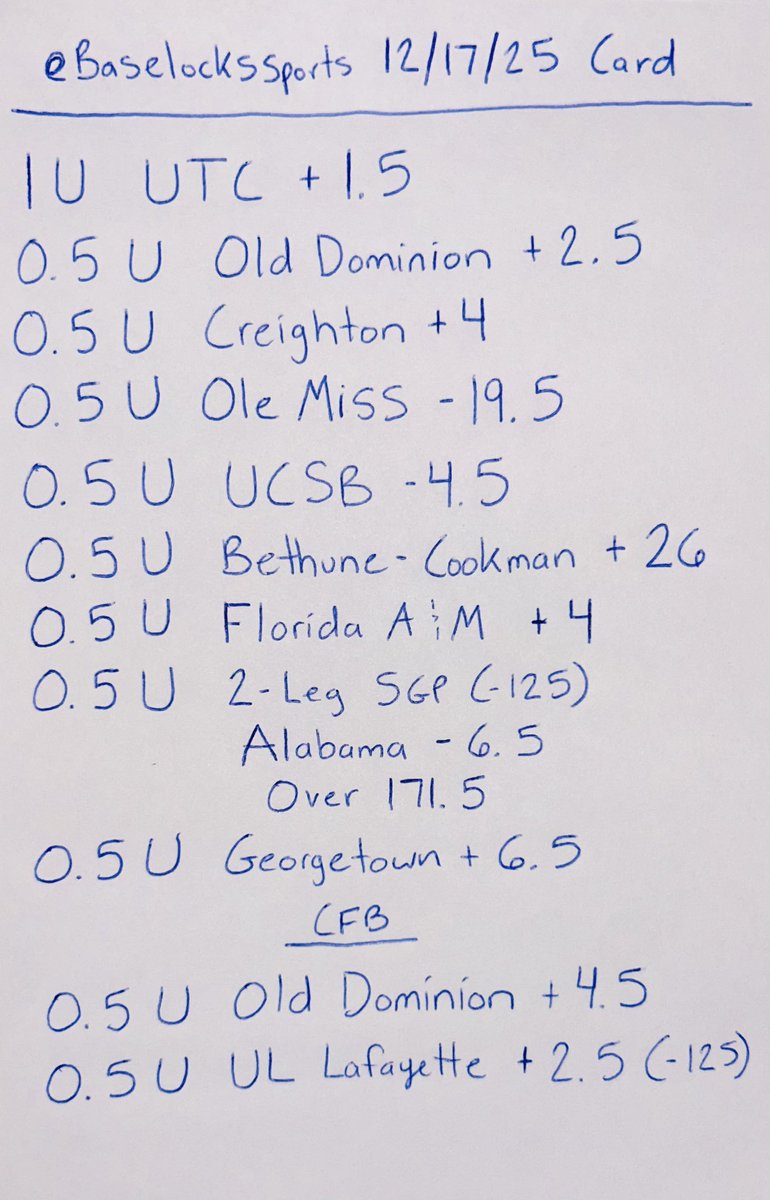 @BaselocksSports 12/17/25 Card
1 U UTC + 1.5
0.5 U Old Dominion + 2.5
0.5 U Creighton + 4
0.5 U Ole Miss - 19.5
0.5 U UCSB - 4.5
0.5 U Bethune-Cookman + 26
0.5 U Florida A & M + 4
0.5 U 2-Leg SGP (-125)
Alabama - 6.5
Over 171.5
0.5 U Georgetown + 6.5
CFB
0.5 U Old Dominion + 4.5
0.5 U UL Lafayette + 2.5 (-125)